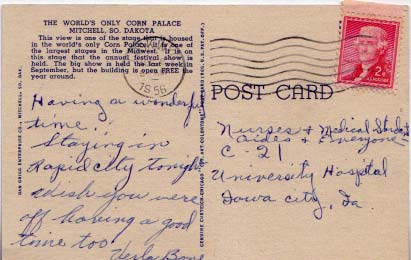 THE WORLD'S ONLY CORN PALACE
MITCHELL, SO. DAKOTA
This view is one of the stage that is housed
in the world's only Corn Palace. It is one of
the largest stages in the Midwest. It is on
this stage that the annual festival show is
held. The big show is held the last week in
September, but the building is open FREE the
year around.
1956
2¢
POST CARD
Having a wonderful
time.
Staying in
Rapid City tonight
wish you were
off having a good
time too.
Verla Bone
Nurses + Medical Students
Aides + Everyone
C 21
University Hospital
Iowa City, Ia.
DAN GRIGG ENTERPRISE CO., MITCHELL, SO. DAK.